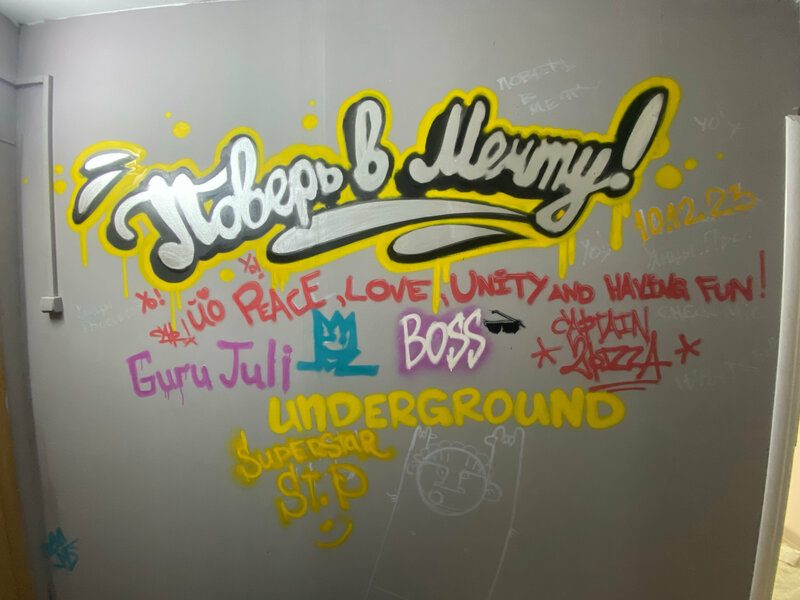 Поверь
в
Мечту
Поверь в Мечту!
Yo'y
10.12.23
Yo's
Yo!
Yo!
ЙО PEACE, LOVE, UNITY AND HAVING FUN!
CHECK MIC
Guru Juli
BO$$
CAPTAIN
UNDERGROUND
SUPERSTAR
ST.P